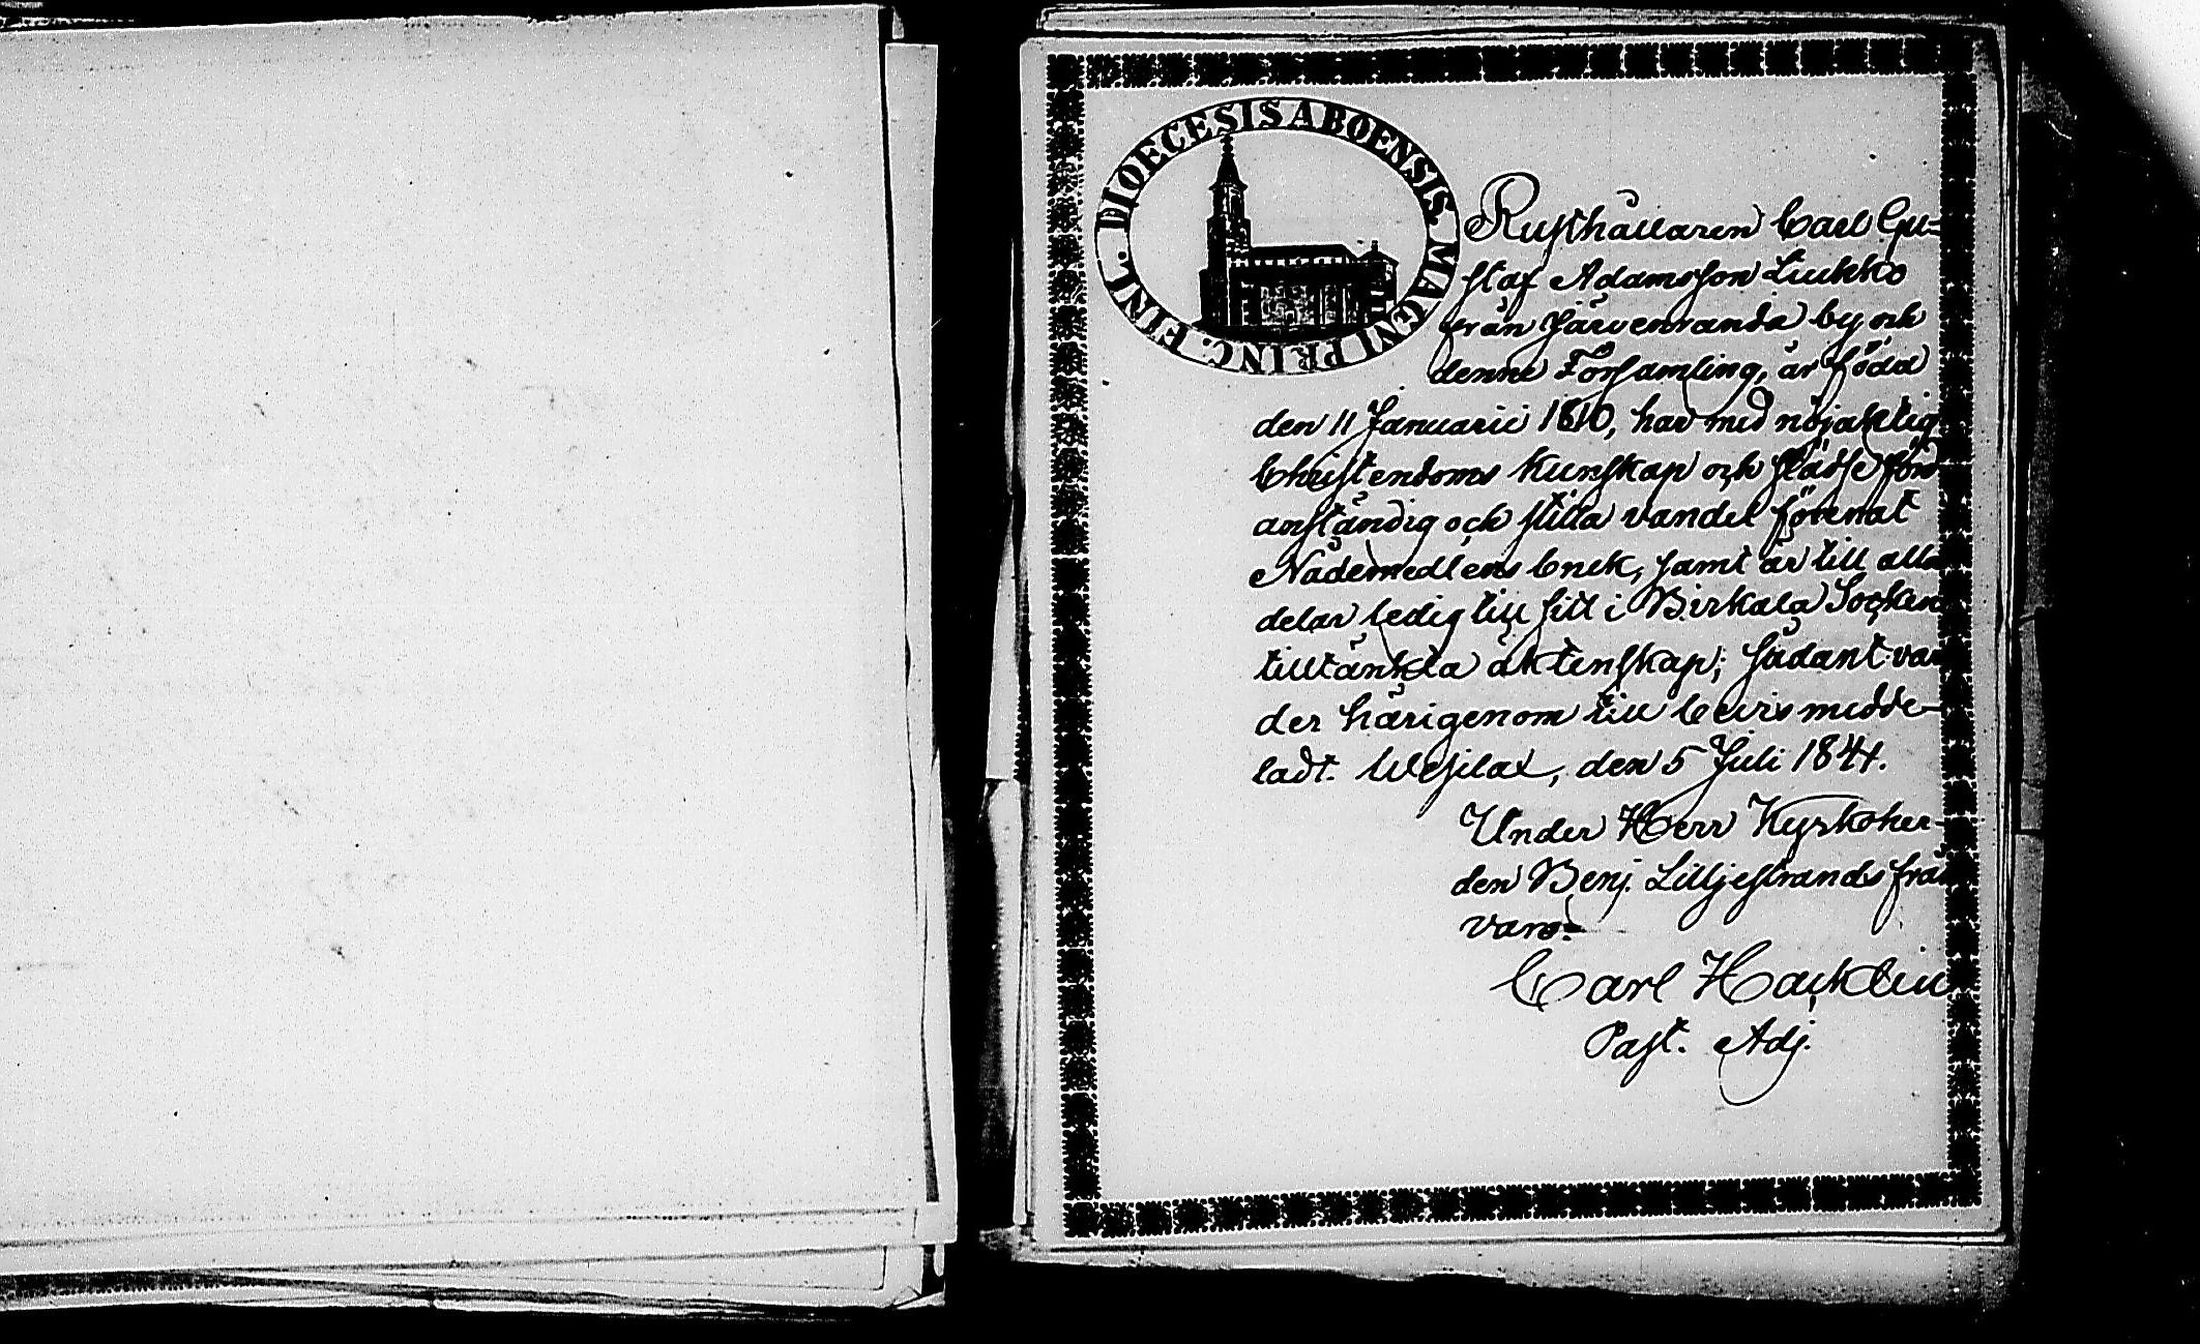 DIOECESIS ABOENSIS. MAGNI PRINC. FINL.
Rusthållaren Carl Gu-
staf Adamsson Liukko
från Järvenranda by och
denne Församling, är född
den 11 Januarii 1810, har med nöjaktig
Christendoms kunskap och
anständig och stilla vandel förenat
Nådemedlens bruk, samt är till alla
delar ledig till sitt i Birkala Socken
tilltänkta äktenskap; sådant var
der härigenom till bevis medde-
ladt. Wesilax, den 5 Juli 1841.
Under Herr Kyrkoher-
den Benj. Lilljestrands från
varo.
Carl Hacklin
Past. Adj.